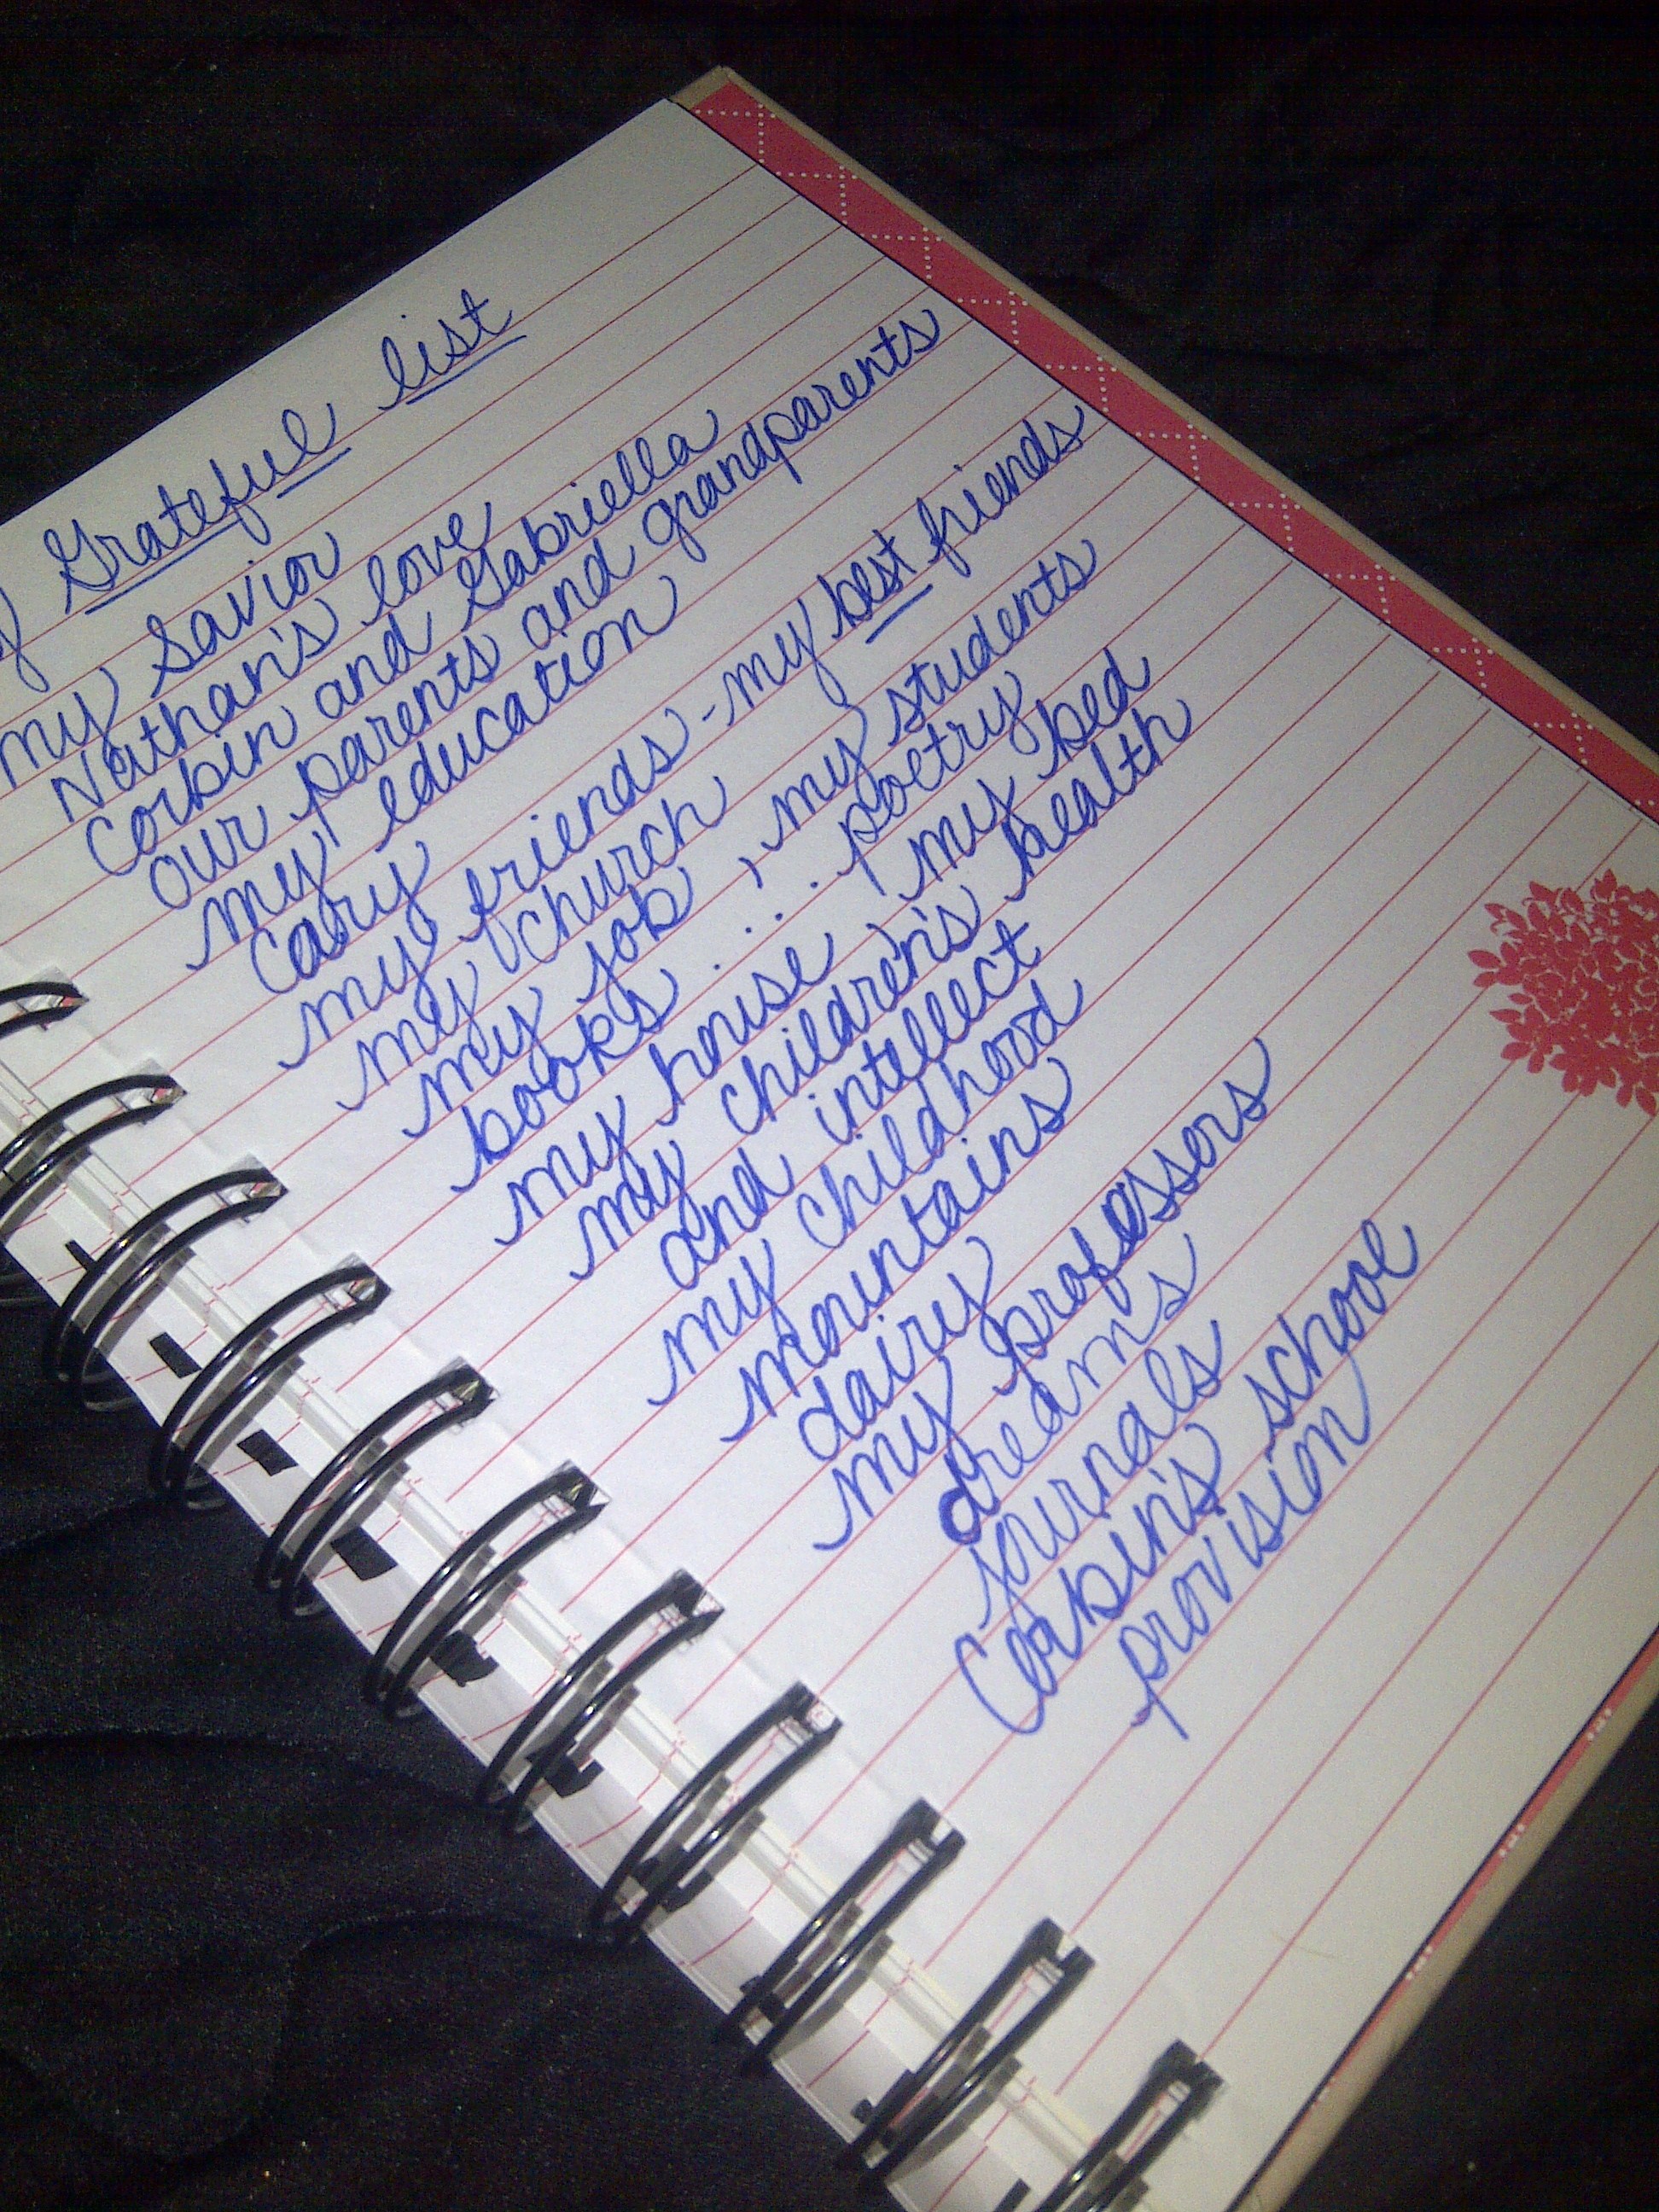 Grateful list
my Savior
Nathan's love
Corbin and Gabriella
our parents and grandparents
my education
Cary
my friends - my best friends
my church
my job, my students
books . . . . poetry
my house, my bed
my children's health
and intellect
my childhood
mountains
dairy
my professors
dreams
journals
Corbin's school
provision